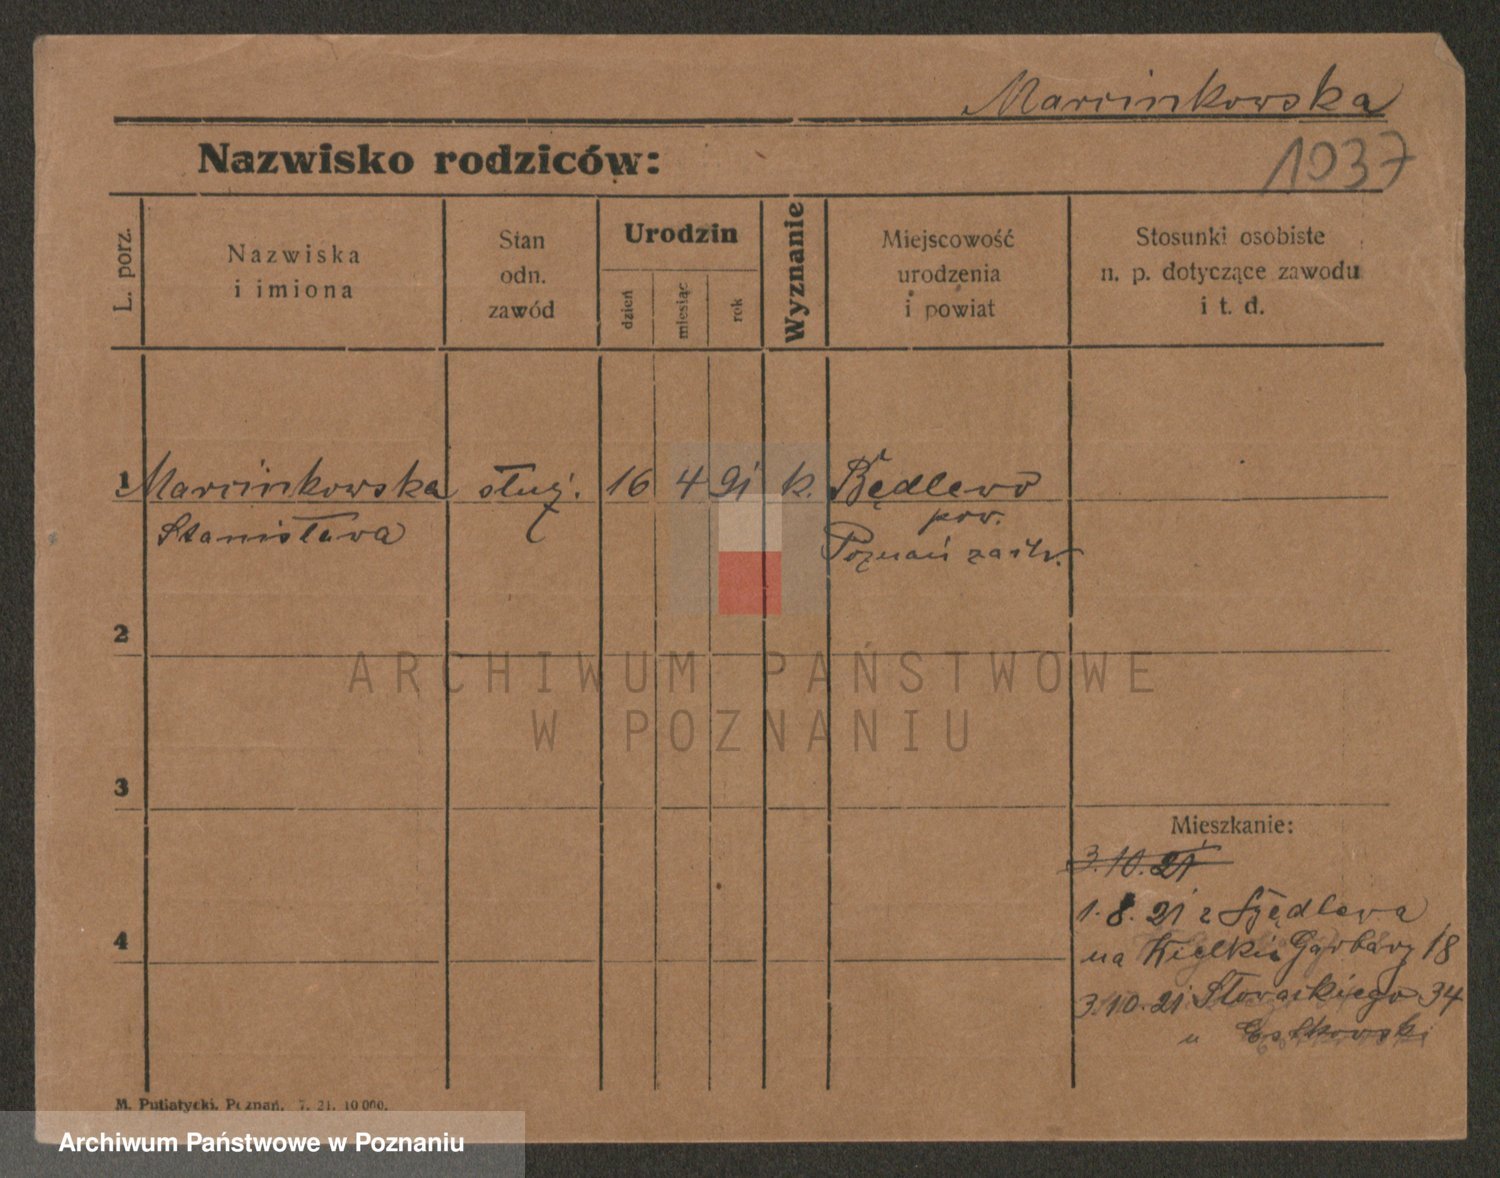 Marcinkowska
Nazwisko rodziców:
1937
L. porz.
Nazwiska
i imiona
Stan
odn.
zawód
Urodzin
dzień
miesiąc
rok
Wyznanie
Miejscowość
urodzenia
i powiat
Stosunki osobiste
n. p. dotyczące zawodu
i t. d.
1 Marcinkowska służ. 16 4 91 k. Będlewo
Stanisława pow.
Poznań zach.
2
3
4
Mieszkanie:
3.10.21
1.8.21 z
na Wielkie Garbary 18
3.10.21 Słowackiego 34
u
M. Putiatycki, Poznań, 7. 21. 10 000.
ARCHIWUM PAŃSTWOWE
W POZNANIU
Archiwum Państwowe w Poznaniu